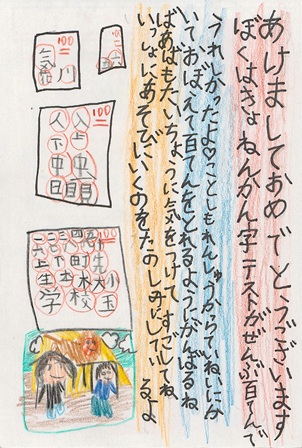 あけましておめでとうございます
ぼくはきょねんかん字テストがぜんぶ百てんで
うれしかったよ♡ことしもれんしゅうからていねいにか
いておぼえて百てんをとれるようにがんばるね
ばあばもたいちょうに気をつけてすごしてね
いっしょにあそびにいくのをたのしみにしているよ
100
100
川
100
人 入
下 上
中 虫
100
町
生 本 校 大 小
字 校 玉